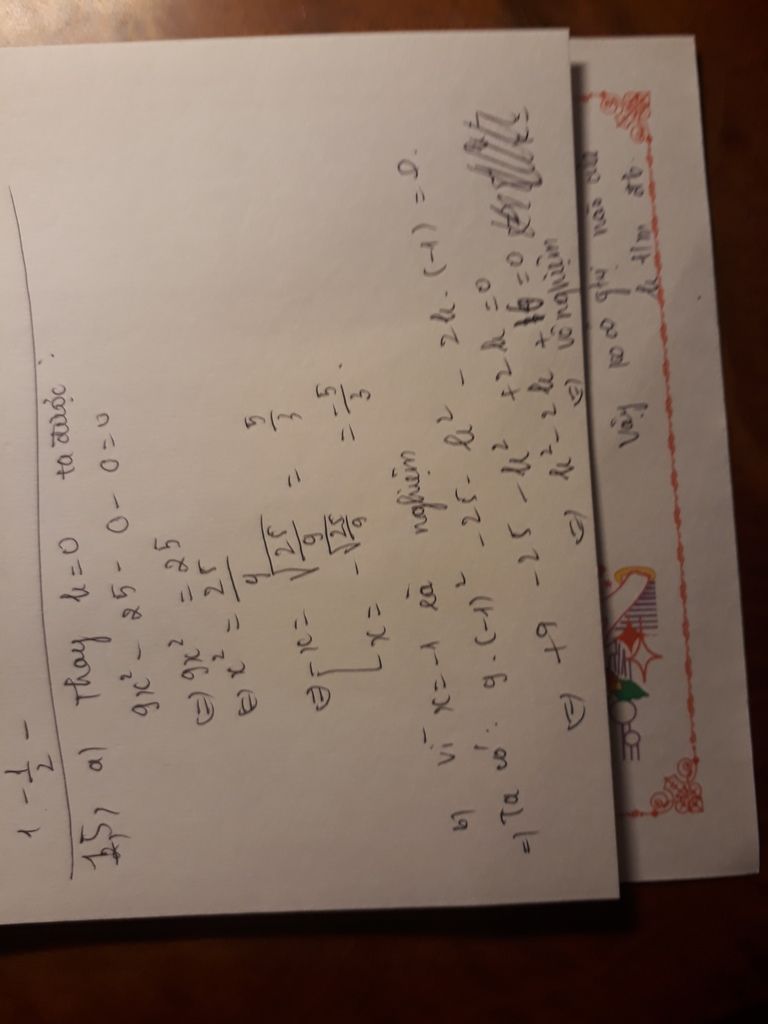 1 - 1/2 -
15, a) Thay k=0 ta được:
9x² - 25 - 0 - 0 = 0
(=) 9x² = 25
(=) x² = 25/9
(=) [ x = √(25/9) = 5/3
x = -√(25/9) = -5/3.
b) Vì x = -1 là nghiệm
=) Ta có: 9.(-1)² - 25 - k² - 2k.(-1) = 0.
(=) +9 - 25 - k² + 2k = 0
(=) k² - 2k + 16 = 0
(=) vô nghiệm
Vậy ko có gtrị nào của
k t/m đb.